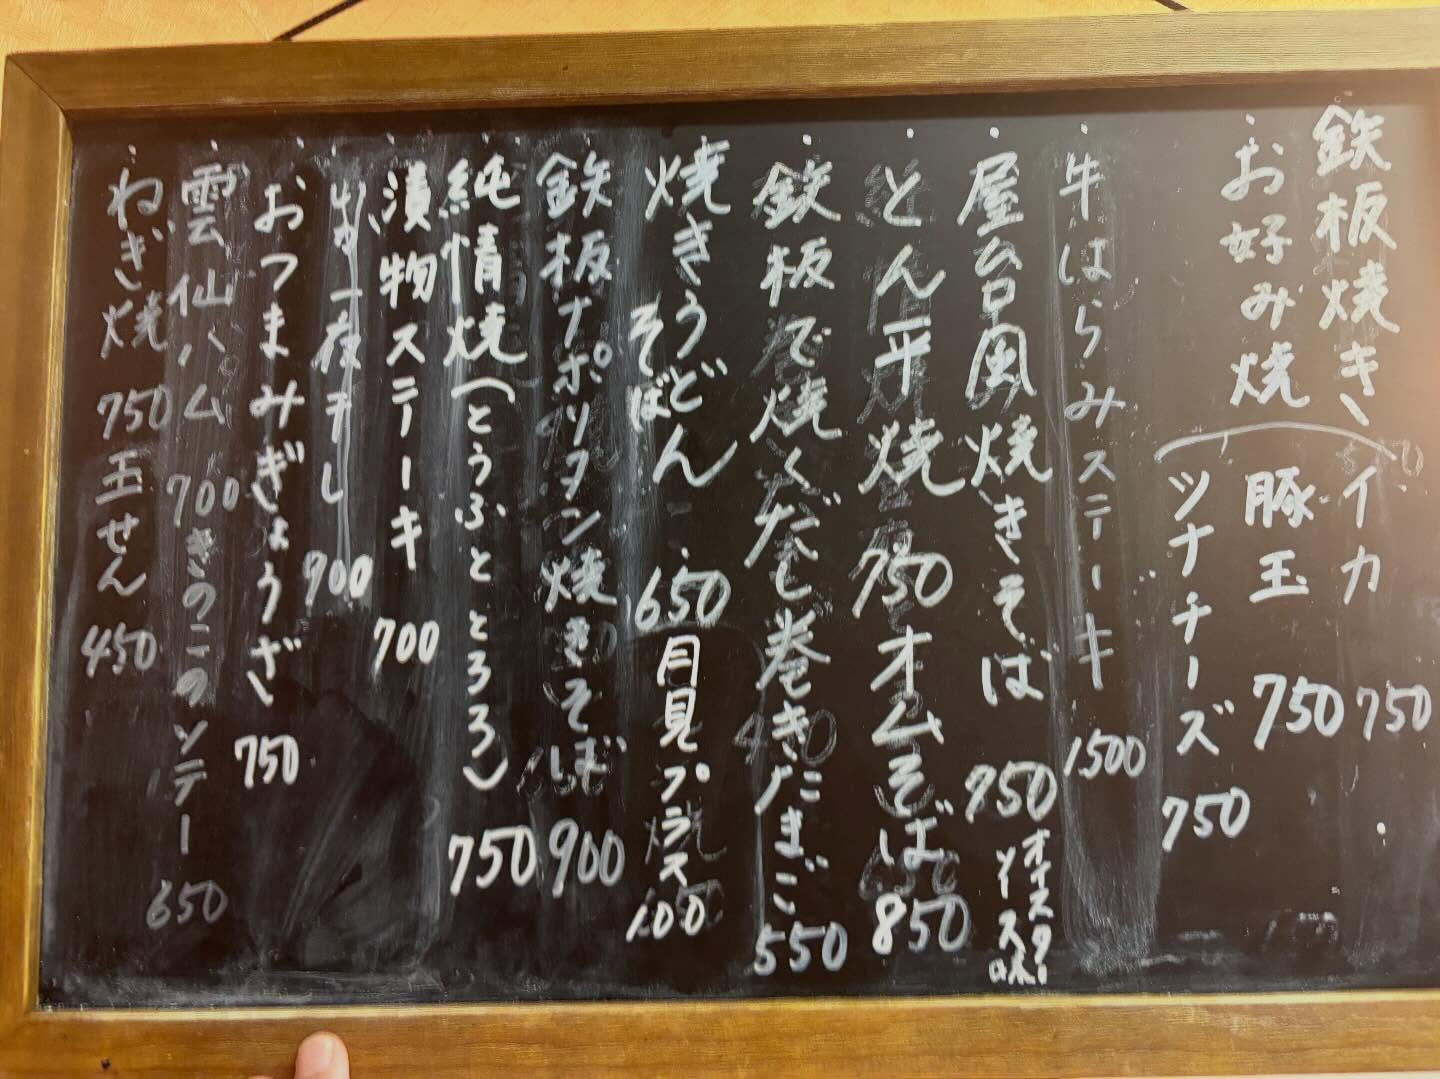 鉄板焼き
お好み焼
イカ 750
豚玉 750
ツナチーズ 750
牛はらみステーキ 1500
屋台風焼きそば 950
オイスターソース味
とん平焼 750 オムそば 850
鉄板で焼くだし巻きたまご 550
焼きうどん
そば
650 月見プラス 100
鉄板ナポリタン焼きそば 900
純情焼(とうふととろろ) 750
漬物ステーキ 700
900
おつまみぎょうざ 750
雲仙ハム 700 きのこのソテー 650
ねぎ焼 750 玉せん 450